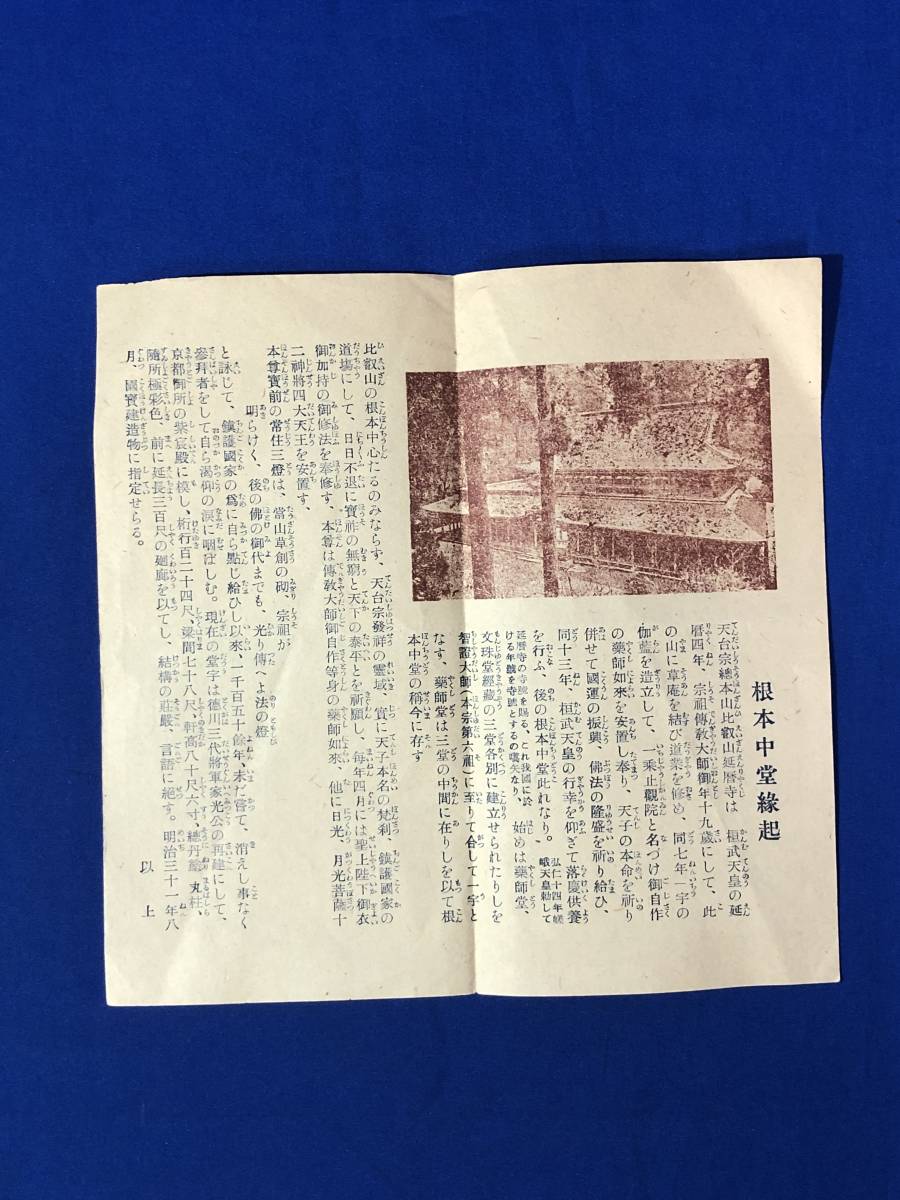 根本中堂緣起
天台宗總本山比叡山延暦寺は 桓武天皇の延
暦四年、宗祖傳敎大師御年十九歲にして、此
の山に草庵を結び道業を修め、同七年一宇の
伽藍を造立して、一乘止觀院と名づけ御自作
の藥師如來を安置し奉り、天子の本命を祈り
併せて國運の振興、佛法の隆盛を祈り給ひ、
同十三年、桓武天皇の行幸を仰ぎて落慶供養
を行ふ、後の根本中堂此れなり。 弘仁十四年嵯
峨天皇勅して
延曆寺の寺號を賜る、これ我國に於
ける年號を寺號とするの嚆矢なり、 始めは藥師堂、
文珠堂經藏の三堂各別に建立せられたりしを
智證大師(本宗第六祖)に至りて合して一宇と
なす、藥師堂は三堂の中間に在りしを以て根
本中堂の稱今に存す
比叡山の根本中心たるのみならず、天台宗發祥の靈域、實に天子本名の梵刹 鎭護國家の
道塲にして、日日不退に寶祚の無窮と天下の泰平とを祈願し、每年四月には聖上陛下御衣
御加持の御修法を奉修す、本尊は傳敎大師御自作等身の藥師如來、他に日光 月光菩薩十
二神將四大天王を安置す、
本尊寶前の常住三燈は、當山草創の砌、宗祖が
明らけく、後の佛の御代までも、光り傳へよ法の燈
と詠じて、鎭護國家の爲に自ら點じ給ひし以來、一千百五十餘年、未だ嘗て、消えし事なく
參拜者をして自ら渴仰の淚に咽ばしむ。現在の堂宇は德川三代將軍家光公の再建にして、
京都御所の紫宸殿に模し、桁行百二十四尺、梁間七十八尺、軒高八十尺六寸、總丹塗 丸柱、
隨所極彩色、前に延長三百尺の廻廊を以てし、結構の莊嚴、言語に絕す。明治三十一年八
月、國寶建造物に指定せらる。
以上